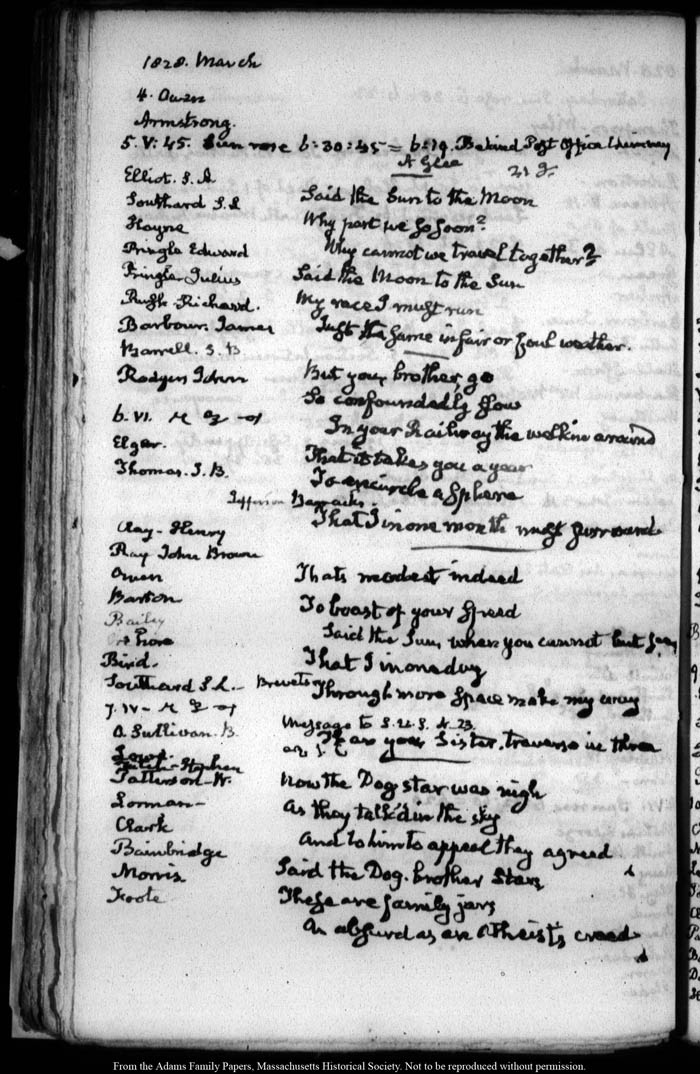 1828. March
4. Owen
Armstrong.
5. V: 45. Sun rose 6:30:45 = 6:19. Behind Post Office Chimney
A Glee
Elliot. S. A
Southard S. L
Said the Sun to the Moon
Hayne
Why part we so soon?
Pringle Edward
Why cannot we travel together?
Pringle Julius
Said the Moon to the Sun
Rush. Richard.
My race I must run
Barbour. James
Just the same in fair or foul weather.
Barrell. S. B
Rodgers John
But you, brother go
So confoundedly slow
6. VI.
In your Railway the welkin around
Elgar.
That it takes you a year
Thomas. J. B.
To encircle a Sphere
Jefferson Barracks.
That I in one month must surround
Clay - Henry
Ray John Brown
Owen
Thats modest indeed
Barton
To boast of your speed
Bailey
Said the Sun, when you cannot but say
Bird.
That I in one day
Southard S. L. - Brevets
Through more space make my way
7. IV -
O Sullivan. B.
Message to S. U. S. & 23.
Than you, Sister, traverse in three
Patterson. W.
Now the Dog star was nigh
Lorman -
As they talk'd in the sky
Clark
And to him to appeal they agreed
Bainbridge
Morris
Said the Dog. brother Stars
Foote
These are family jars
As absurd as an Atheist's creed
From the Adams Family Papers, Massachusetts Historical Society. Not to be reproduced without permission.